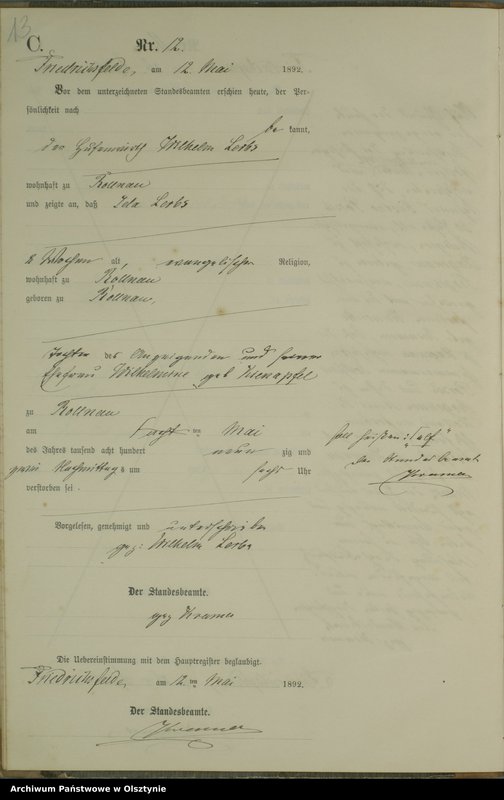 13
C.
Nr. 12.
Friedrichsfelde, am 12. Mai 1892.
Vor dem unterzeichneten Standesbeamten erschien heute, der Per-
sönlichkeit nach
be kannt,
der Wilhelm Lerbs
wohnhaft zu Röllnau
und zeigte an, daß Ida Lerbs
Wochen alt, evangelischer Religion,
wohnhaft zu Röllnau
geboren zu Röllnau,
Tochter des Anzeigenden und seiner
Ehefrau Wilhelmine geb
zu Röllnau
am ten Mai
des Jahres tausend acht hundert neun zig und
zwei Nachmittags um sechs Uhr
verstorben sei.
soll heißen: "elf"
Der Standesbeamte
Kramer
Vorgelesen, genehmigt und unterschrieben
gez: Wilhelm Lerbs
Der Standesbeamte.
gez Kramer
Die Uebereinstimmung mit dem Hauptregister beglaubigt.
Friedrichsfelde, am 12. ten Mai 1892.
Der Standesbeamte.
Kramer
Archiwum Państwowe w Olsztynie